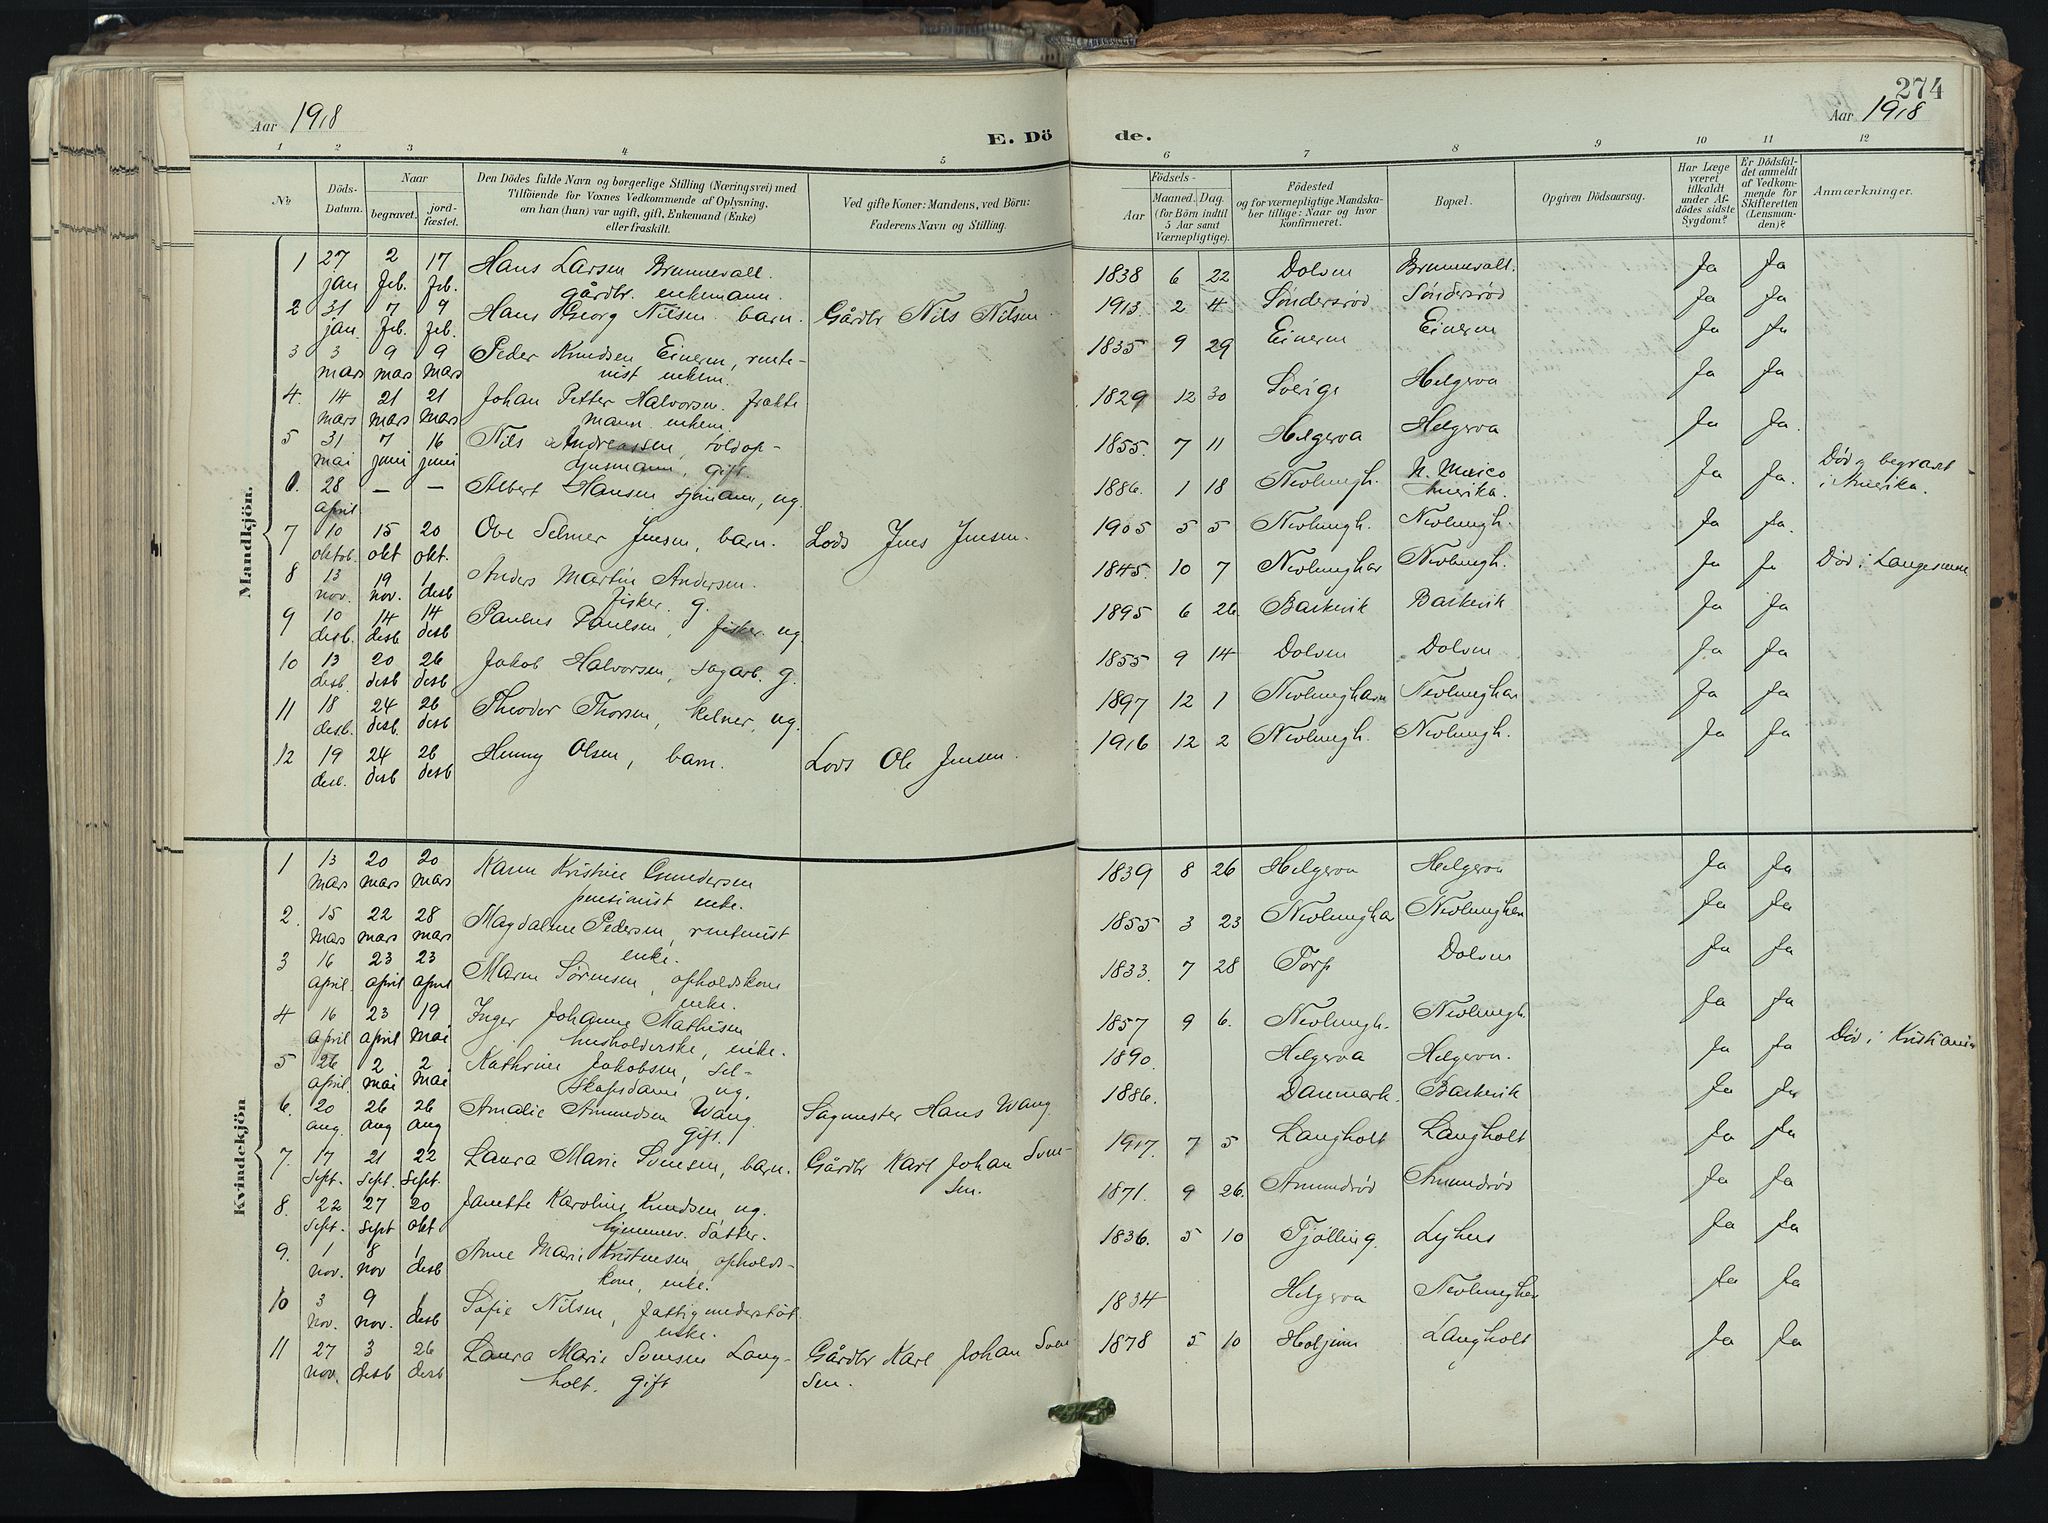 274
Aar 1918
E. Dö
de.
Aar 1918
1 2 3 4 5 6 7 8 9 10 11 12
No
Döds-
Datum.
Naar
begravet.
jord-
fæstet.
Den Dödes fulde Navn og borgerlige Stilling (Næringsvei) med
Tilföiende for Voxnes Vedkommende af Oplysning,
om han (hun) var ugift, gift, Enkemand (Enke)
eller fraskilt.
Ved gifte Koner: Mandens, ved Börn:
Faderens Navn og Stilling.
Födsels-
Aar
Maaned. Dag.
(for Börn indtil
5 Aar samt
Værnepligtige).
Födested
og for værnepligtige Mandska-
ber tillige: Naar og hvor
konfirmeret.
Bopæl.
Opgiven Dödsaarsag.
Har Læge
været
tilkaldt
under Af-
dödes sidste
Sygdom?
Er Dödsfal-
det anmeldt
af Vedkom-
mende for
Skifteretten
(Lensman-
den)?
Anmærkninger.
Mandkjön.
1 27 2 17 Hans Larsen Brunnevall. 1838 6 22 Dolven Brunnevall. Ja Ja
jan feb. feb. gårdbr. enkemann.
2 31 7 9 Hans Georg Nilsen. barn. Gårdbr Nils Nilsen. 1913 2 4 Söndersröd Söndersröd Ja Ja
jan. feb. feb.
3 3 9 9 Peder Knudsen Eineren, rente- 1835 9 29 Eineren Eineren Ja Ja
mars mars mars nist enkem.
4. 14 21 21 Johan Petter Halvorsen. frakte 1829 12 30 Sverige Helgeroa Ja Ja
mars mars mars mann. enkem.
5 31 7 16 Nils Andreassen, toldop- 1855. 7 11 Helgeroa Helgeroa Ja Ja.
mai juni juni synsmann, gift.
6. 28 — — Albert Hansen sjømann, ug. 1886. 1 18 Nevlungh. N. Mexico Ja Ja. Død og begravet
april Amerika. i Amerika.
7 10 15 20 Ove Selmer Jensen, barn. Lods Jens Jensen. 1905 5 5 Nevlungh. Nevlungh. Ja Ja.
oktob. okt okt.
8 13 19 1 Anders Martin Andersen. 1845. 10 7 Nevlunghav Nevlungh. Ja Ja Død i Langesund
nov. nov. desb fisker. g.
9 10 14 14 Paulus Paulsen, fisker. ug. 1895 6 26 Barkevik Barkevik Ja Ja
desb. desb desb
10 13 20 26 Jakob Halvorsen, sagarb. g. 1855 9 14 Dolven Dolven Ja Ja
desb. desb desb
11 18 24 26 Theodor Thorsen, kelner, ug. 1897 12 1 Nevlunghavn Nevlunghav Ja Ja
desb. desb. desb
12 19 24 26 Henny Olsen, barn. Lods Ole Jensen. 1916 12 2 Nevlungh. Nevlungh. Ja Ja
desb. desb desb
Kvindekjön
1 13 20 20 Karen Kristine Gundersen 1839 8 26 Helgeroa Helgeroa Ja Ja
mars mars mars pensionist enke.
2. 15 22 28 Magdalene Pedersen, rentenist 1855 3 23 Nevlunghav Nevlunghav Ja Ja
mars mars mars enke.
3 16 23 23 Maren Sørensen, opholdskone 1833. 7 28 Torp Dolven Ja Ja
april. april april enke.
4 16 23 19 Inger Johanne Mathisen 1857 9 6. Nevlungh. Nevlungh. Ja Ja
april april mai husholderske, enke.
5 26 2 2 Kathrine Jakobsen, sel- 1890. Helgeroa Helgeroa. Ja Ja Død i Kristiania
april. mai mai skapsdame ug.
6. 20 26 26 Amalie Amundsen Wang Sagmester Hans Wang 1886. Danmark. Barkevik Ja Ja
aug. aug aug gift.
7. 17 21 22 Laura Marie Svensen, barn. Gårdbr Karl Johan Sven- 1917. 7 5 Langholt Langholt Ja Ja
sept. sept. sept. sen.
8. 22 27 20 Janette Karoline Knudsen ug. 1871. 9 26. Amundröd Amundröd Ja Ja
sept. sept okt hjemmev. datter.
9. 1 8 1 Anne Marie Kristensen, opholds- 1836. 5 10 Tjølling. Lyhus Ja Ja
nov. nov desb kone, enke.
10 3 9 1 Sofie Nilsen, fattigunderstøt. 1834 Helgeroa Nevlunghav Ja Ja
nov. nov. desb enke.
11 27 3 26 Laura Marie Svensen Lang- Gårdbr Karl Johan Sven 1878 5 10 Langholt Ja Ja
nov. desb desb holt. gift sen.